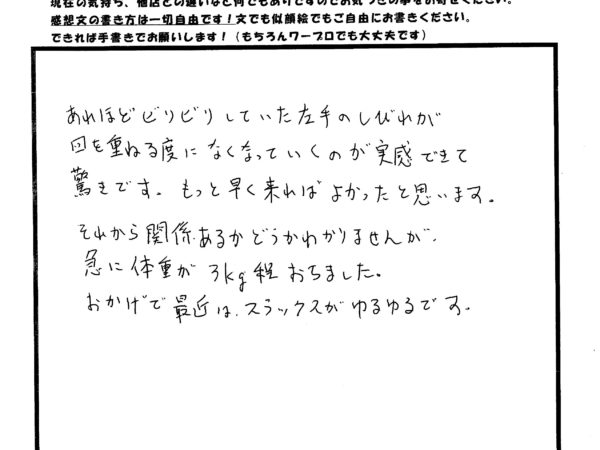 現在の気持ち、他店との違いなど何でもありですのでお気づきの事をお寄せください。
感想文の書き方は一切自由です！文でも似顔絵でもご自由にお書きください。
できれば手書きでお願いします！（もちろんワープロでも大丈夫です）
あれほどビリビリしていた左手のしびれが
回を重ねる度になくなっていくのが実感できて
驚きです。もっと早く来ればよかったと思います。
それから関係あるかどうかわかりませんが、
急に体重が3kg程おちました。
おかげで最近は、スラックスがゆるゆるです。